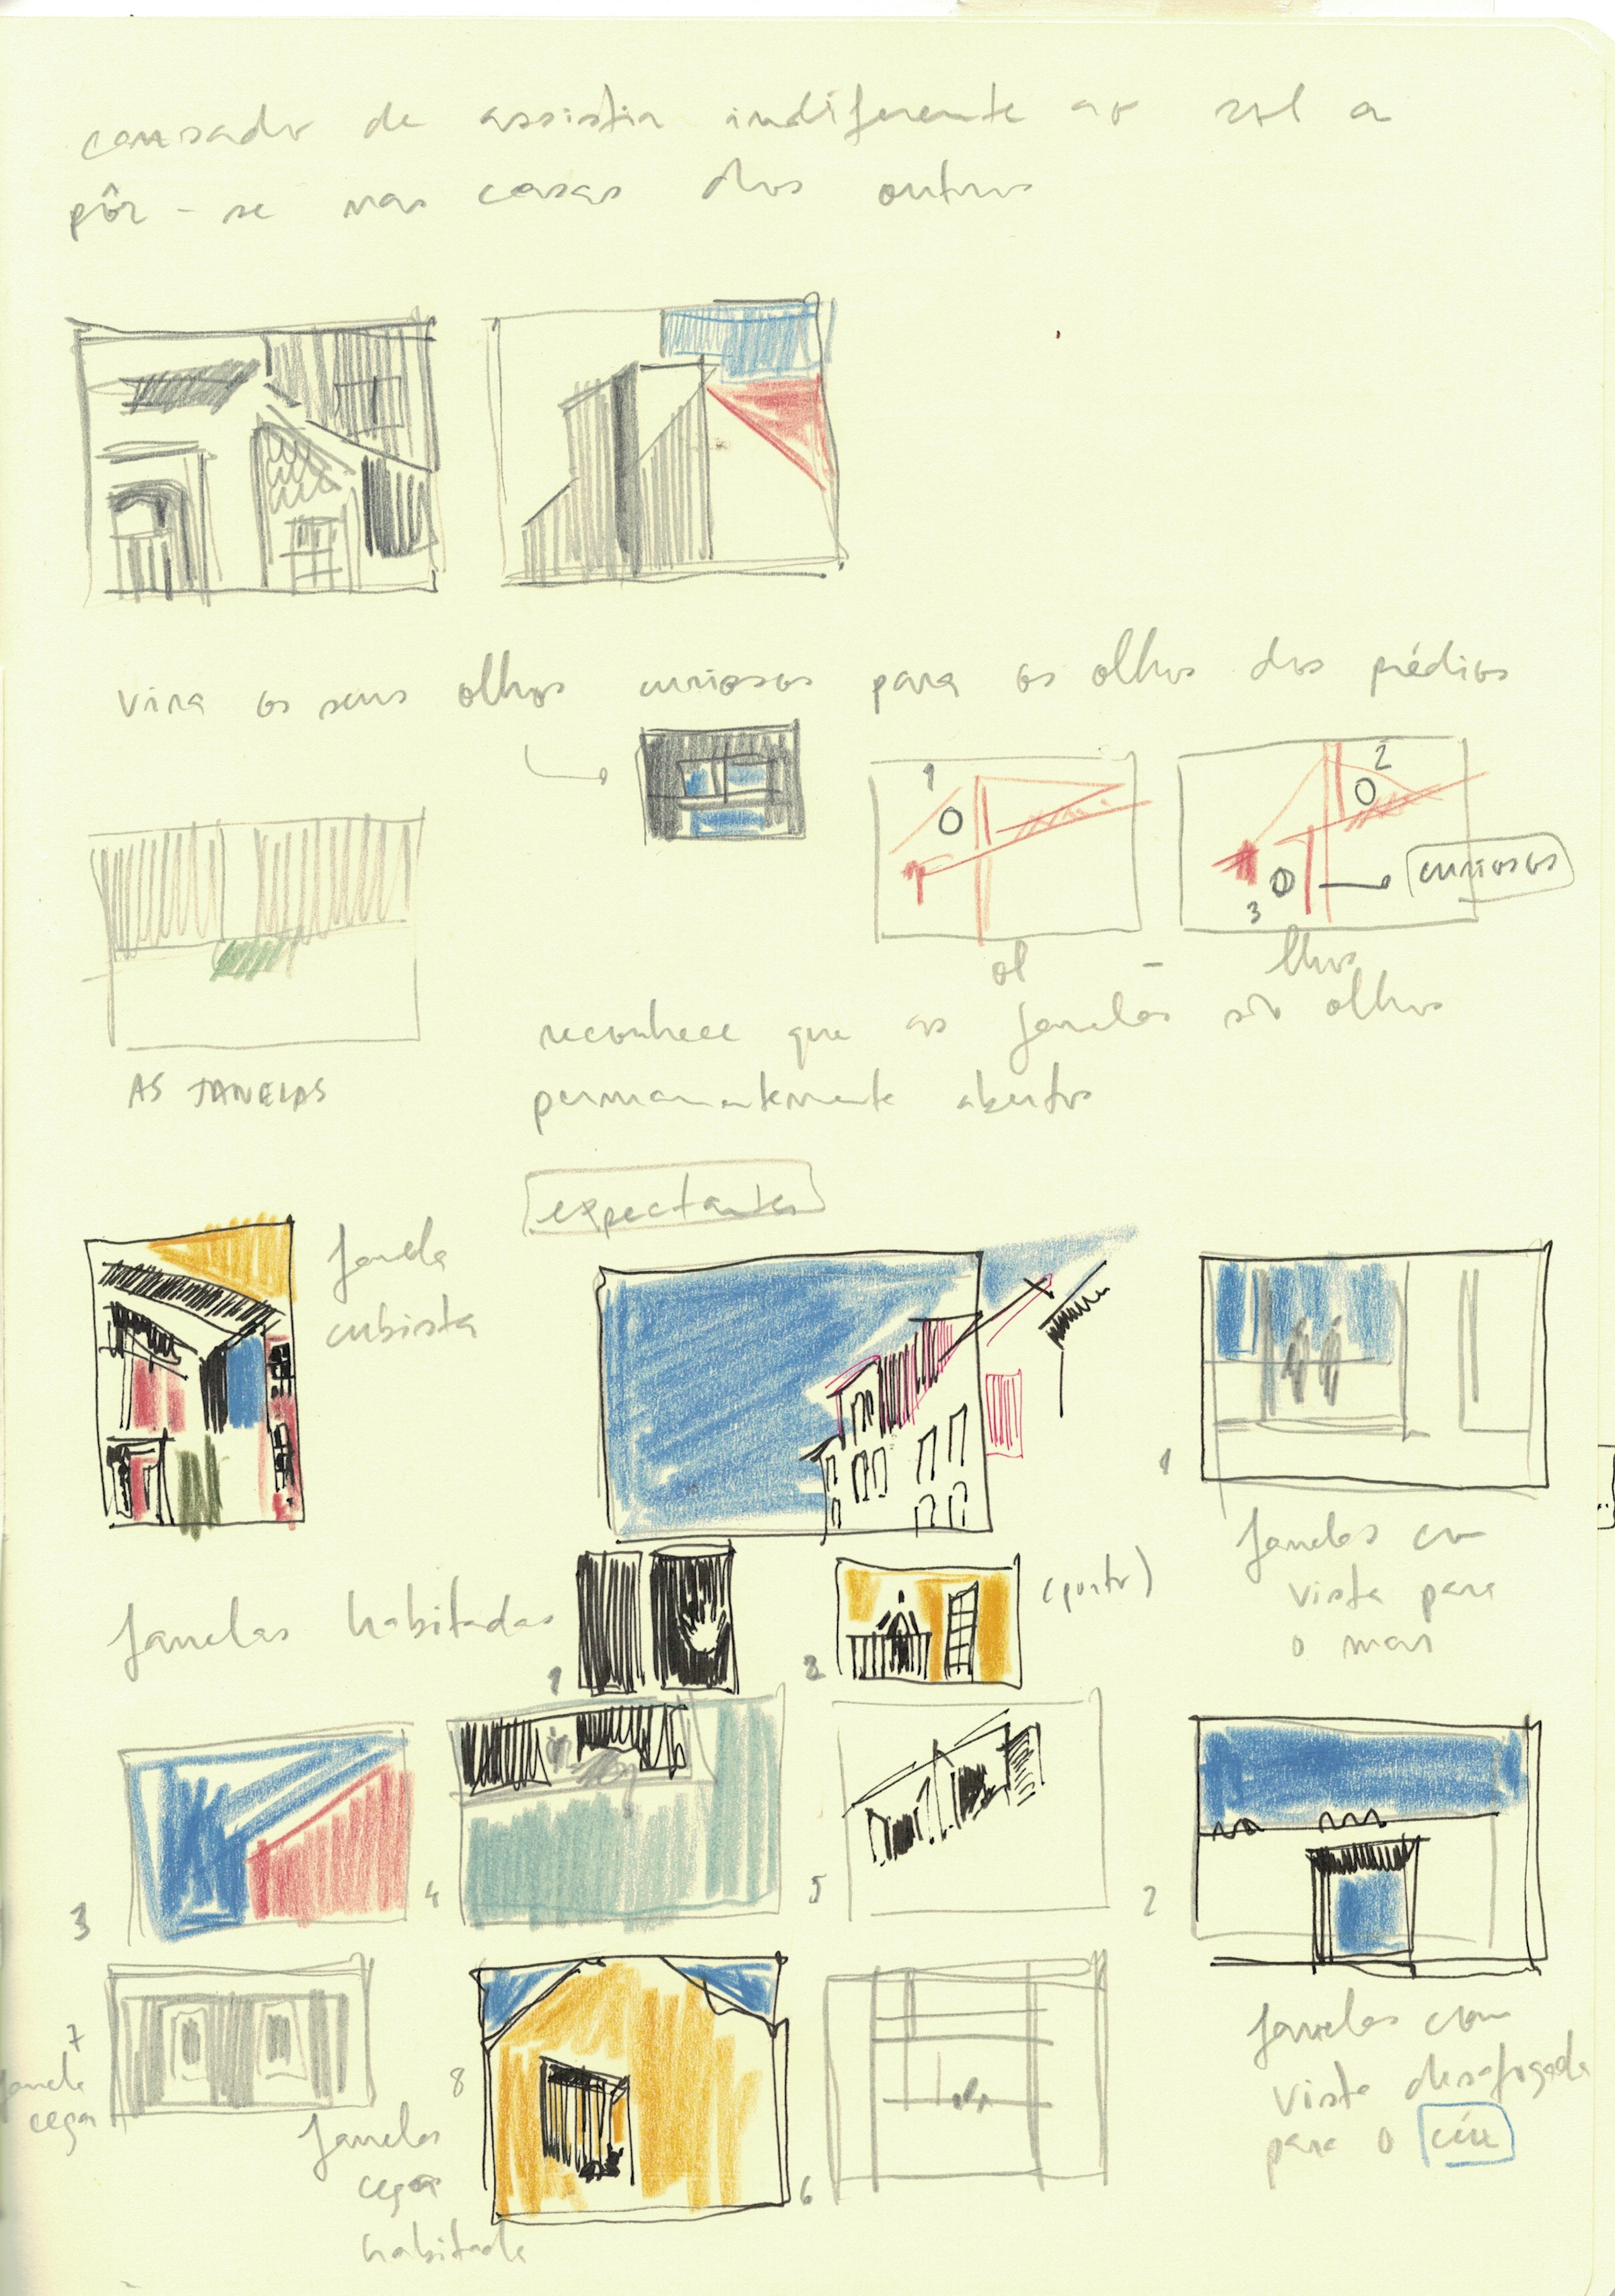 cansado de assistir indiferente ao sol a
pôr-se nas casas dos outros
vira os seus olhos curiosos para os olhos dos prédios
1
2
3
curiosos
ol - lhos
reconhece que as janelas são olhos
permanentemente abertos
AS JANELAS
expectantes
janela
cubista
1
janelas com
vista para
o mar
janelas habitadas
1
2
(porto)
3
4
5
2
janelas com
vista desafogada
para o céu
7
janela
cega
8
6
janelas
cegas
habitada